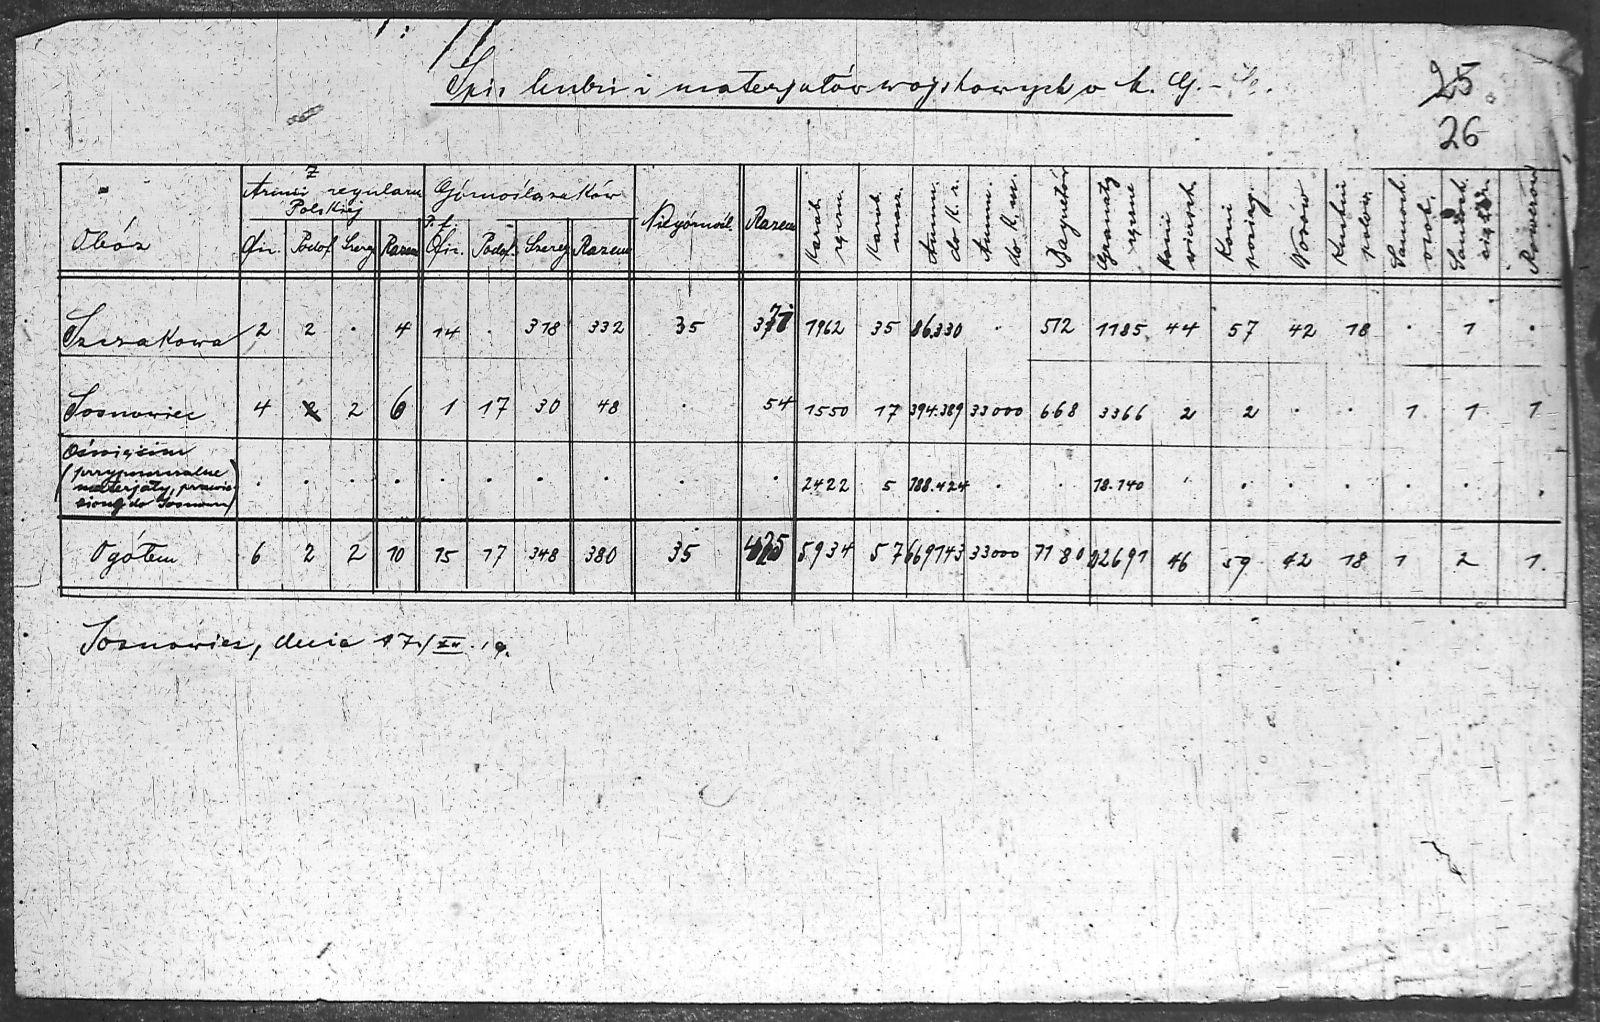 Spis ludzi i materjałów wojskowych o k. G. - Śl.
25
26
Obóz
Z Armii regularn Polskiej
Górnoślązaków
Niegórnośl.
Razem
Karab. ręczn.
Karab. masz.
Amun. do K. r.
Amun. do K. m.
Bagnetów
Granaty ręczne
Koni wierzch.
Koni pociąg.
Wozów
Kuchni polow.
Samoch. osob.
Samoch. cięż.
Rowerów
Ofic. Podof. Szereg. Razem Ofic. Podof. Szereg. Razem
Szczakowa 2 2 . 4 14 . 318 332 35 371 1962 35 86.330 . 512 1185 44 57 42 18 . 1 .
Sosnowiec 4 2 2 6 1 17 30 48 . 54 1550 17 394.389 33000 668 3366 2 2 . . 1 1 1
Oświęcim
materjały,
do Sosnow)
. . . . . . . . . . 2422 5 188.424 . . 18.140 . . . . . . .
Ogółem 6 2 2 10 15 17 348 380 35 425 5934 57 669143 33000 1180 22691 46 59 42 18 1 2 1.
Sosnowiec, dnia 17/XII. 19.